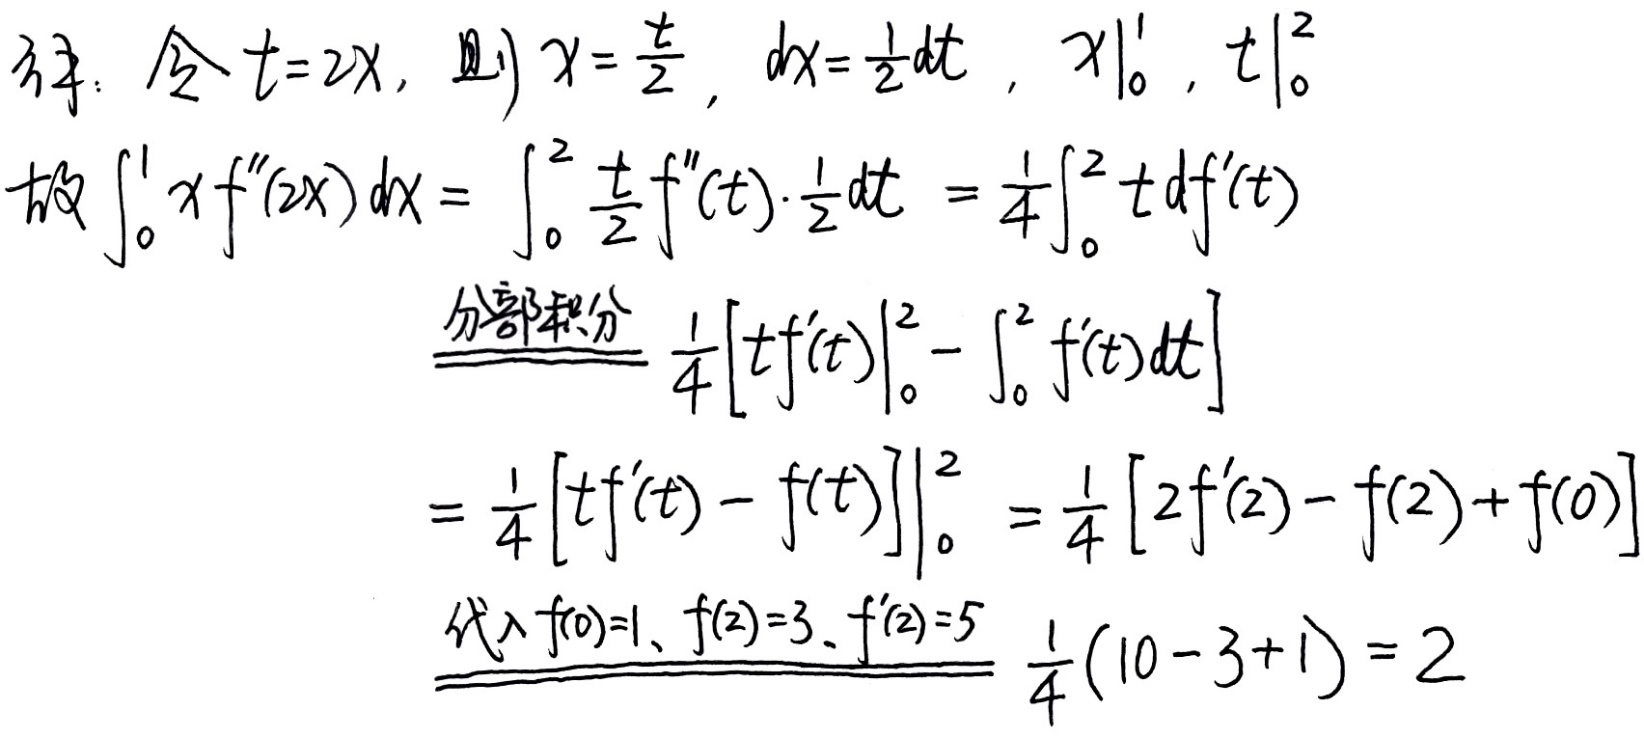 解: 令 t=2x, 则 x=t/2, dx=1/2 dt, x|₀¹, t|₀²
故 ∫₀¹ x f″(2x) dx = ∫₀² t/2 f″(t)·1/2 dt = 1/4 ∫₀² t df′(t)
分部积分 1/4 [t f′(t)|₀² − ∫₀² f′(t) dt]
= 1/4 [t f′(t) − f(t)]|₀² = 1/4 [2f′(2) − f(2) + f(0)]
代入 f(0)=1、f(2)=3、f′(2)=5 1/4 (10−3+1) = 2